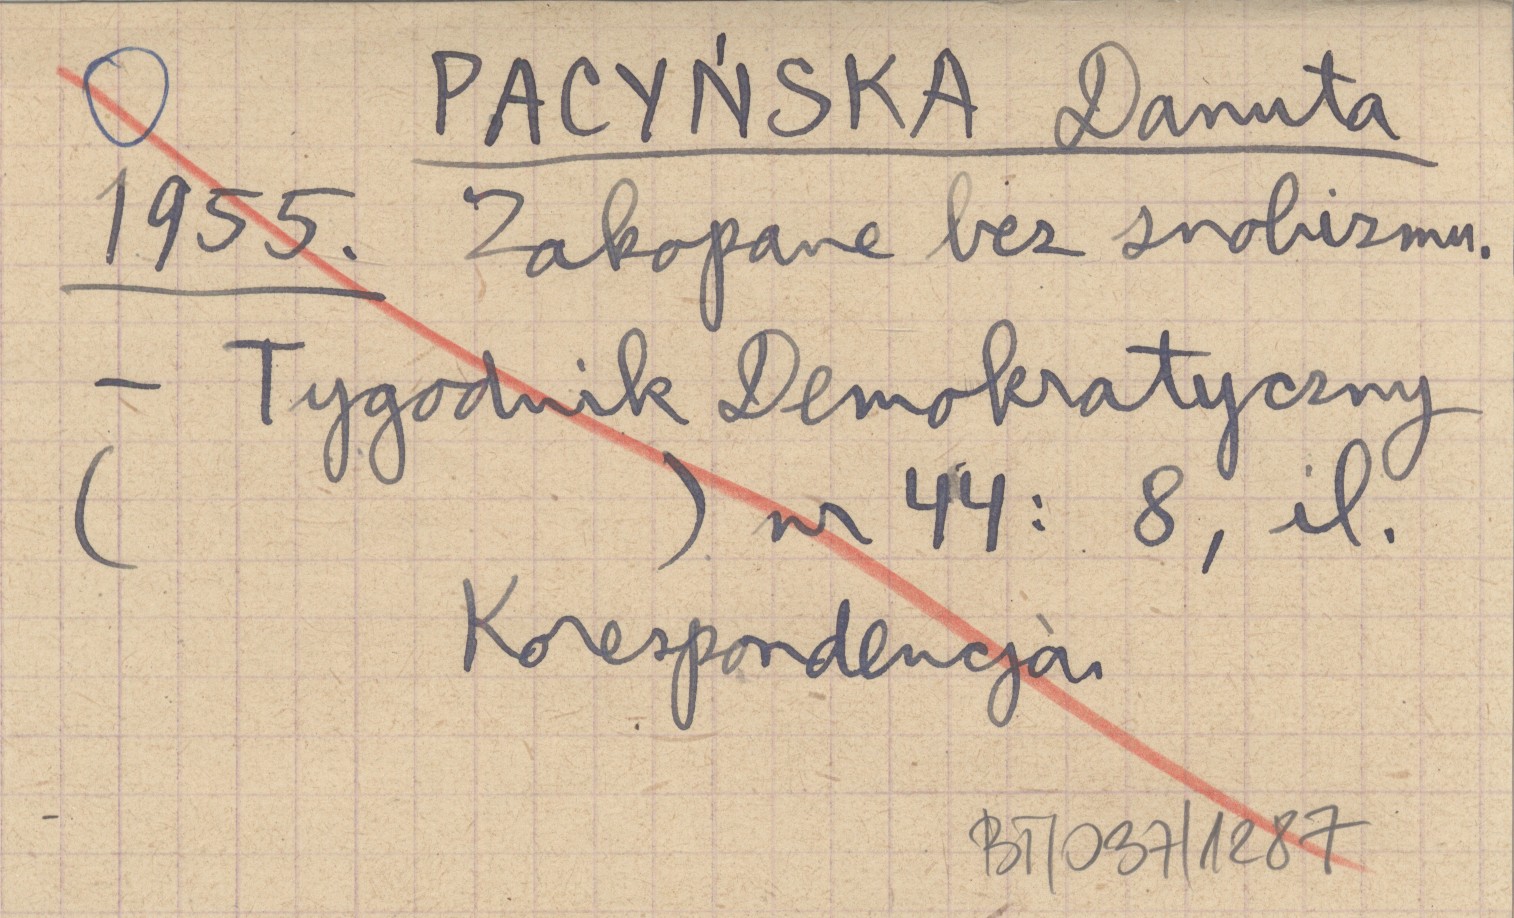 PACYŃSKA Danuta
1955. Zakopane bez snobizmu.
- Tygodnik Demokratyczny
( ) nr 44: 8, il.
Korespondencja.
BT/037/1287